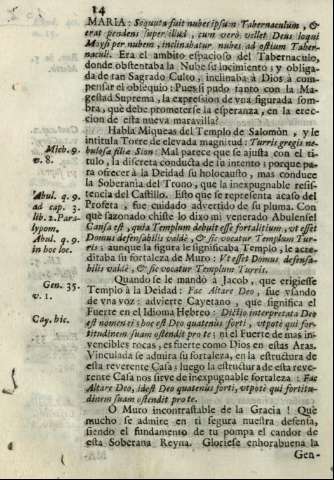 14
MARIA: Sequuta fuit nubes ipsum Tabernaculum, &
erat pendens super illud, cum verò vellet Deus loqui
Moysi per nubem, inclinabatur nubes ad ostium Taberna-
naculi. Era el ambito espacioso del Tabernaculo,
donde obstentaba la Nube su lucimiento; y obliga-
da de tan Sagrado Culto, inclinaba à Dios à com-
pensar el obsequio: Pues si pudo tanto con la Ma-
gestad Suprema, la expresion de vna figurada som-
bra, què debe prometerse la esperanza, en la erec-
cion de esta nueva maravilla?
Habla Miqueas del Templo de Salomòn, y le in-
titula Torre de elevada magnitud: Turris gregis ne-
Mich. 9.
bulosa filiæ Sion: Mal parece que se ajusta con el ti-
v. 8.
tulo, la discreta conducta de su intento: porque pa-
ra ofrecer à la Deidad su holocausto, mas conduce
la Soberanìa del Trono, que la inexpugnable resis-
tencia del Castillo. Esto que se representa acaso del
Profeta, fue cuidado advertido de su pluma. Con
què sazonado chiste lo dixo mi venerado Abulense!
Abul. q. 9.
ad cap. 3.
lib. 2. Para-
lypom.
Causa est, quia Templum debuit esse fortalitium, vt esset
Abul. q. 9.
Domus defensabilis valdè, & sic vocatur Templum Tur-
in hoc loc.
ris: aunque la figura le significaba Templo, le acre-
ditaba su fortaleza de Muro: Vt esset Domus defensa-
bilis valdè, & sic vocatur Templum Turris.
Quando se le mandò à Jacob, que erigiesse
Gen. 35.
Templo à la Deidad: Fac Altare Deo, fue vsando
v. 1.
de vna voz: advierte Cayetano, que significa el
Fuerte en el Idioma Hebreo: Dictio interpretata Deo
est nomen ti hoc est Deo quatenus forti, vtpotè qui for-
Cay. hic.
titudinem suam ostendit pro te: ni el Fuerte de mas in-
vencibles rocas, es fuerte como Dios en estas Aras.
Vinculada se admira su fortaleza, en la estructura de
esta reverente Casa: luego la estructura de esta reve-
rente Casa nos sirve de inexpugnable fortaleza: Fac
Altare Deo, idest Deo quatenus forti, vtpotè qui fortitu-
dinem suam ostendit pro te.
O Muro incontrastable de la Gracia! Què
mucho se admire en ti segura nuestra defensa,
siendo el fundamento de tu pompa el candor de
esta Soberana Reyna. Gloriese enhorabuena la
Gen-